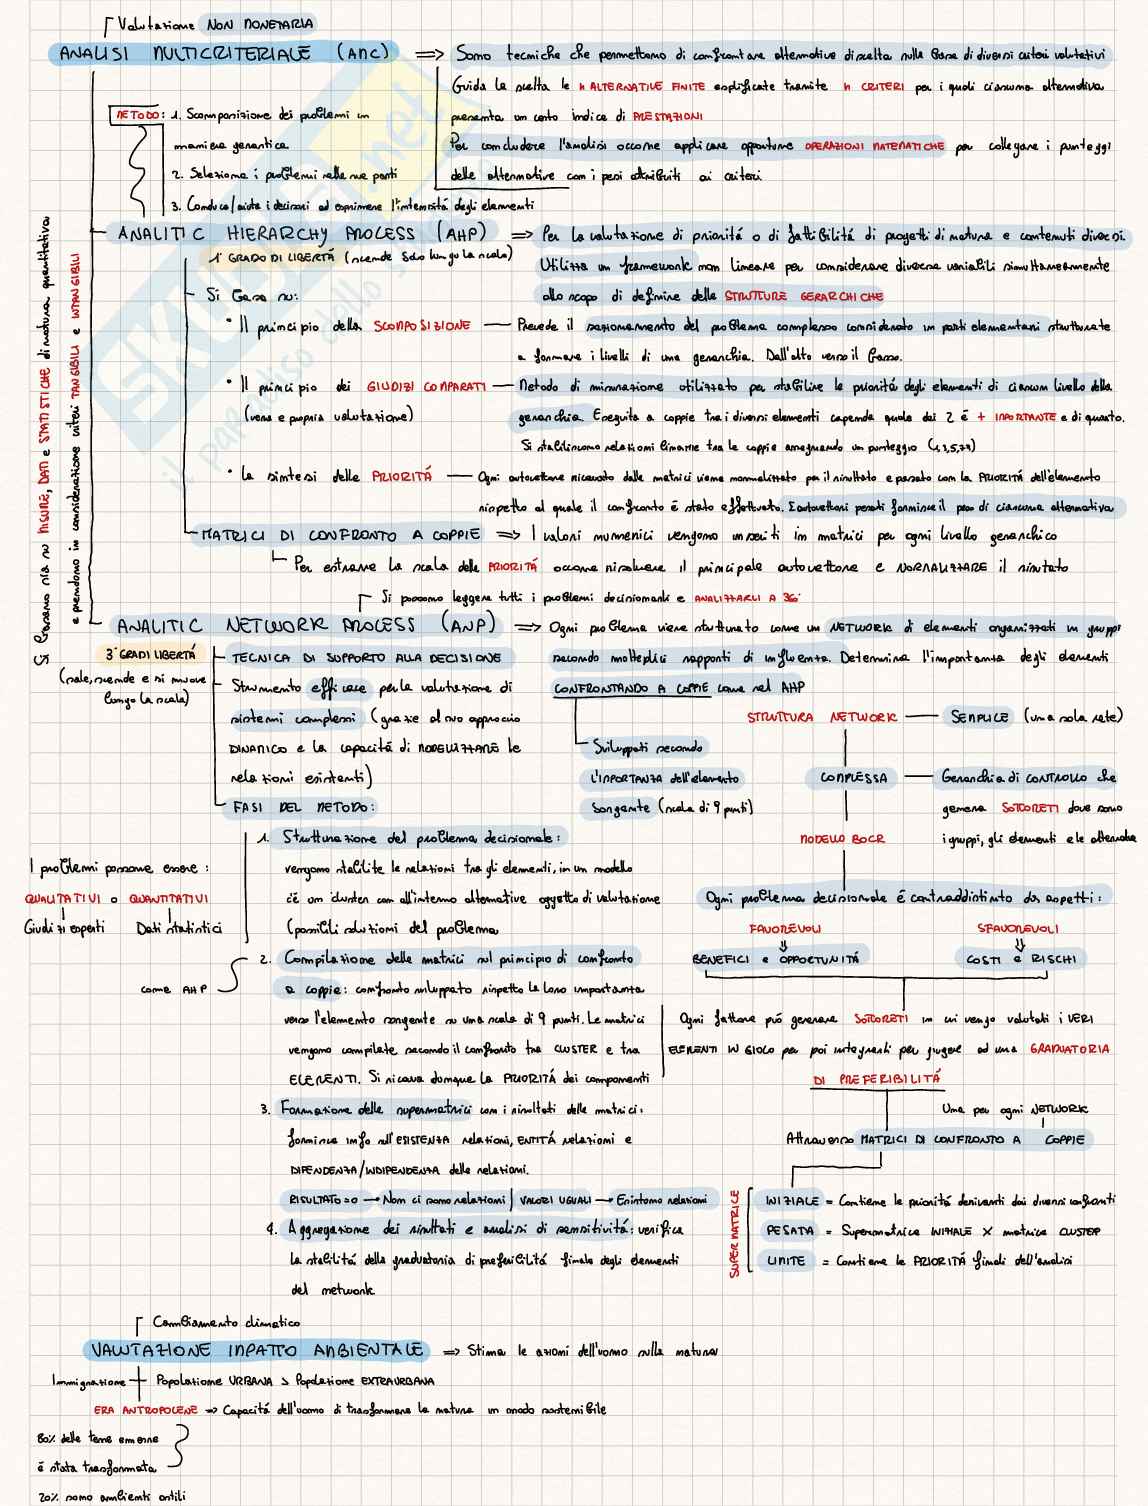 Valutazione NON MONETARIA
ANALISI MULTICRITERIALE (AMC) => Sono tecniche che permettono di confrontare alternative di scelta sulla base di diversi criteri valutativi
Guida la scelta le n ALTERNATIVE FINITE esplificate tramite n CRITERI per i quali ciascuna alternativa
presenta un certo indice di PRESTAZIONI
Per concludere l'analisi occorre applicare opportune OPERAZIONI MATEMATICHE per collegare i punteggi
delle alternative con i pesi attribuiti ai criteri
METODO: 1. Scomposizione dei problemi in
maniera gerarchica
2. Seleziona i problemi nelle sue parti
3. Conduce/aiuta i decisori ad esprimere l'intensità degli elementi
Si basano sia su MISURE, DATI e STATISTICHE di natura quantitativa
e prendono in considerazione criteri TANGIBILI e INTANGIBILI
ANALITIC HIERARCHY PROCESS (AHP) => Per la valutazione di priorità o di fattibilità di progetti di natura e contenuti diversi.
1° GRADO DI LIBERTÁ (scende solo lungo la scala)
Utilizza un framework non lineare per considerare diverse variabili simultaneamente
allo scopo di definire delle STRUTTURE GERARCHICHE
Si basa su:
• Il principio della SCOMPOSIZIONE — Prevede il sezionamento del problema complesso considerato in parti elementari strutturate
a formare i livelli di una gerarchia. Dall'alto verso il basso.
• Il principio dei GIUDIZI COMPARATI — Metodo di misurazione utilizzato per stabilire le priorità degli elementi di ciascun livello della
(vera e propria valutazione)
gerarchia. Eseguita a coppie tra i diversi elementi capendo quale dei 2 è + IMPORTANTE e di quanto.
Si stabiliscono relazioni binarie tra le coppie assegnando un punteggio (1,3,5,7,9)
• La sintesi delle PRIORITÁ — Ogni autovettore ricavato dalle matrici viene normalizzato per il risultato e pesato con la PRIORITÁ dell'elemento
rispetto al quale il confronto è stato effettuato. I autovettori pesati fornisce il peso di ciascuna alternativa
MATRICI DI CONFRONTO A COPPIE => I valori numerici vengono inseriti in matrici per ogni livello gerarchico
Per estrarre la scala delle PRIORITÁ occorre risolvere il principale autovettore e NORMALIZZARE il risultato
Si possono leggere tutti i problemi decisionali e ANALIZZARLI A 36°
ANALITIC NETWORK PROCESS (ANP) => Ogni problema viene strutturato come un NETWORK di elementi organizzati in gruppi
secondo molteplici rapporti di influenza. Determina l'importanza degli elementi
CONFRONTANDO A COPPIE come nel AHP
3° GRADI LIBERTÁ
(sale, scende e si muove
lungo la scala)
TECNICA DI SUPPORTO ALLA DECISIONE
Strumento efficace per la valutazione di
sistemi complessi (grazie al suo approccio
DINAMICO e la capacità di MODELLIZZARE le
relazioni esistenti)
FASI DEL METODO:
Sviluppati secondo
l'IMPORTANZA dell'elemento
sorgente (scala di 9 punti)
STRUTTURA NETWORK — SEMPLICE (una sola rete)
COMPLESSA — Gerarchia di CONTROLLO che
genera SOTTORETI dove sono
i gruppi, gli elementi e le alternative
MODELLO BOCR
Ogni problema decisionale è contraddistinto da aspetti:
FAVOREVOLI SFAVOREVOLI
BENEFICI e OPPORTUNITÁ COSTI e RISCHI
Ogni fattore può generare SOTTORETI in cui vengo valutati i VERI
ELEMENTI IN GIOCO per poi integrarsi per giugere ad una GRADUATORIA
DI PREFERIBILITÁ
Una per ogni NETWORK
Attraverso MATRICI DI CONFRONTO A COPPIE
SUPERMATRICE
INIZIALE = Contiene le priorità derivanti dai diversi confronti
PESATA = Supermatrice INIZIALE X matrice CLUSTER
LIMITE = Contiene le PRIORITÁ finali dell'analisi
I problemi possono essere:
QUALITATIVI o QUANTITATIVI
Giudizi esperti Dati statistici
1. Strutturazione del problema decisionale:
vengono stabilite le relazioni tra gli elementi, in un modello
c'è un cluster con all'interno alternative oggetto di valutazione
(possibili soluzioni del problema
2. Compilazione delle matrici sul principio di confronto
a coppie: confronto sviluppato rispetto la loro importanza
come AHP
verso l'elemento sorgente su una scala di 9 punti. Le matrici
vengono compilate secondo il confronto tra CLUSTER e tra
ELEMENTI. Si ricava dunque la PRIORITÁ dei componenti
3. Formazione delle supermatrici con i risultati delle matrici:
fornisce info sull'ESISTENZA relazioni, ENTITÁ relazioni e
DIPENDENZA/INDIPENDENZA delle relazioni.
RISULTATO=0 → Non ci sono relazioni | VALORI UGUALI → Esistono relazioni
4. Aggregazione dei risultati e analisi di sensitività: verifica
la stabilità della graduatoria di preferibilità finale degli elementi
del network
Cambiamento climatico
VALUTAZIONE IMPATTO AMBIENTALE => Stima le azioni dell'uomo sulla natura
Immigrazione Popolazione URBANA > Popolazione EXTRAURBANA
ERA ANTROPOCENE => Capacità dell'uomo di trasformare la natura in modo sostenibile
80% delle terre emerse
è stata trasformata
20% sono ambienti ostili